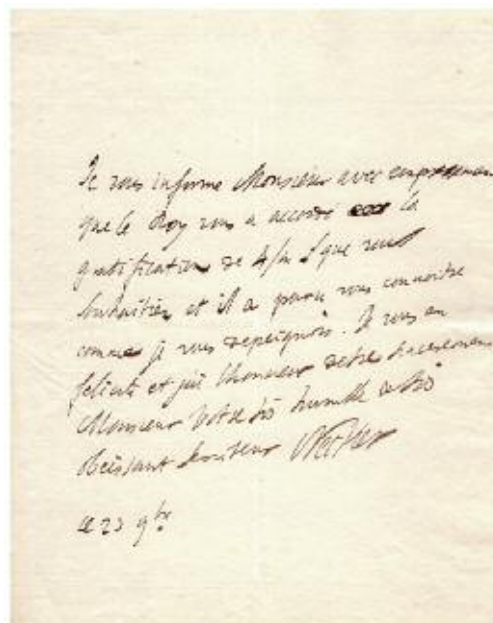 Je vous informe Monsieur avec empressement
que le Roy vous a accordé la
gratification de 4/m que vous
souhaitiez et il a paru vous connoitre
comme je vous depeignois. Je vous en
felicite et j'ai l'honneur detre
Monsieur Votre très humble et très
obeissant serviteur Necker
ce 23 9bre